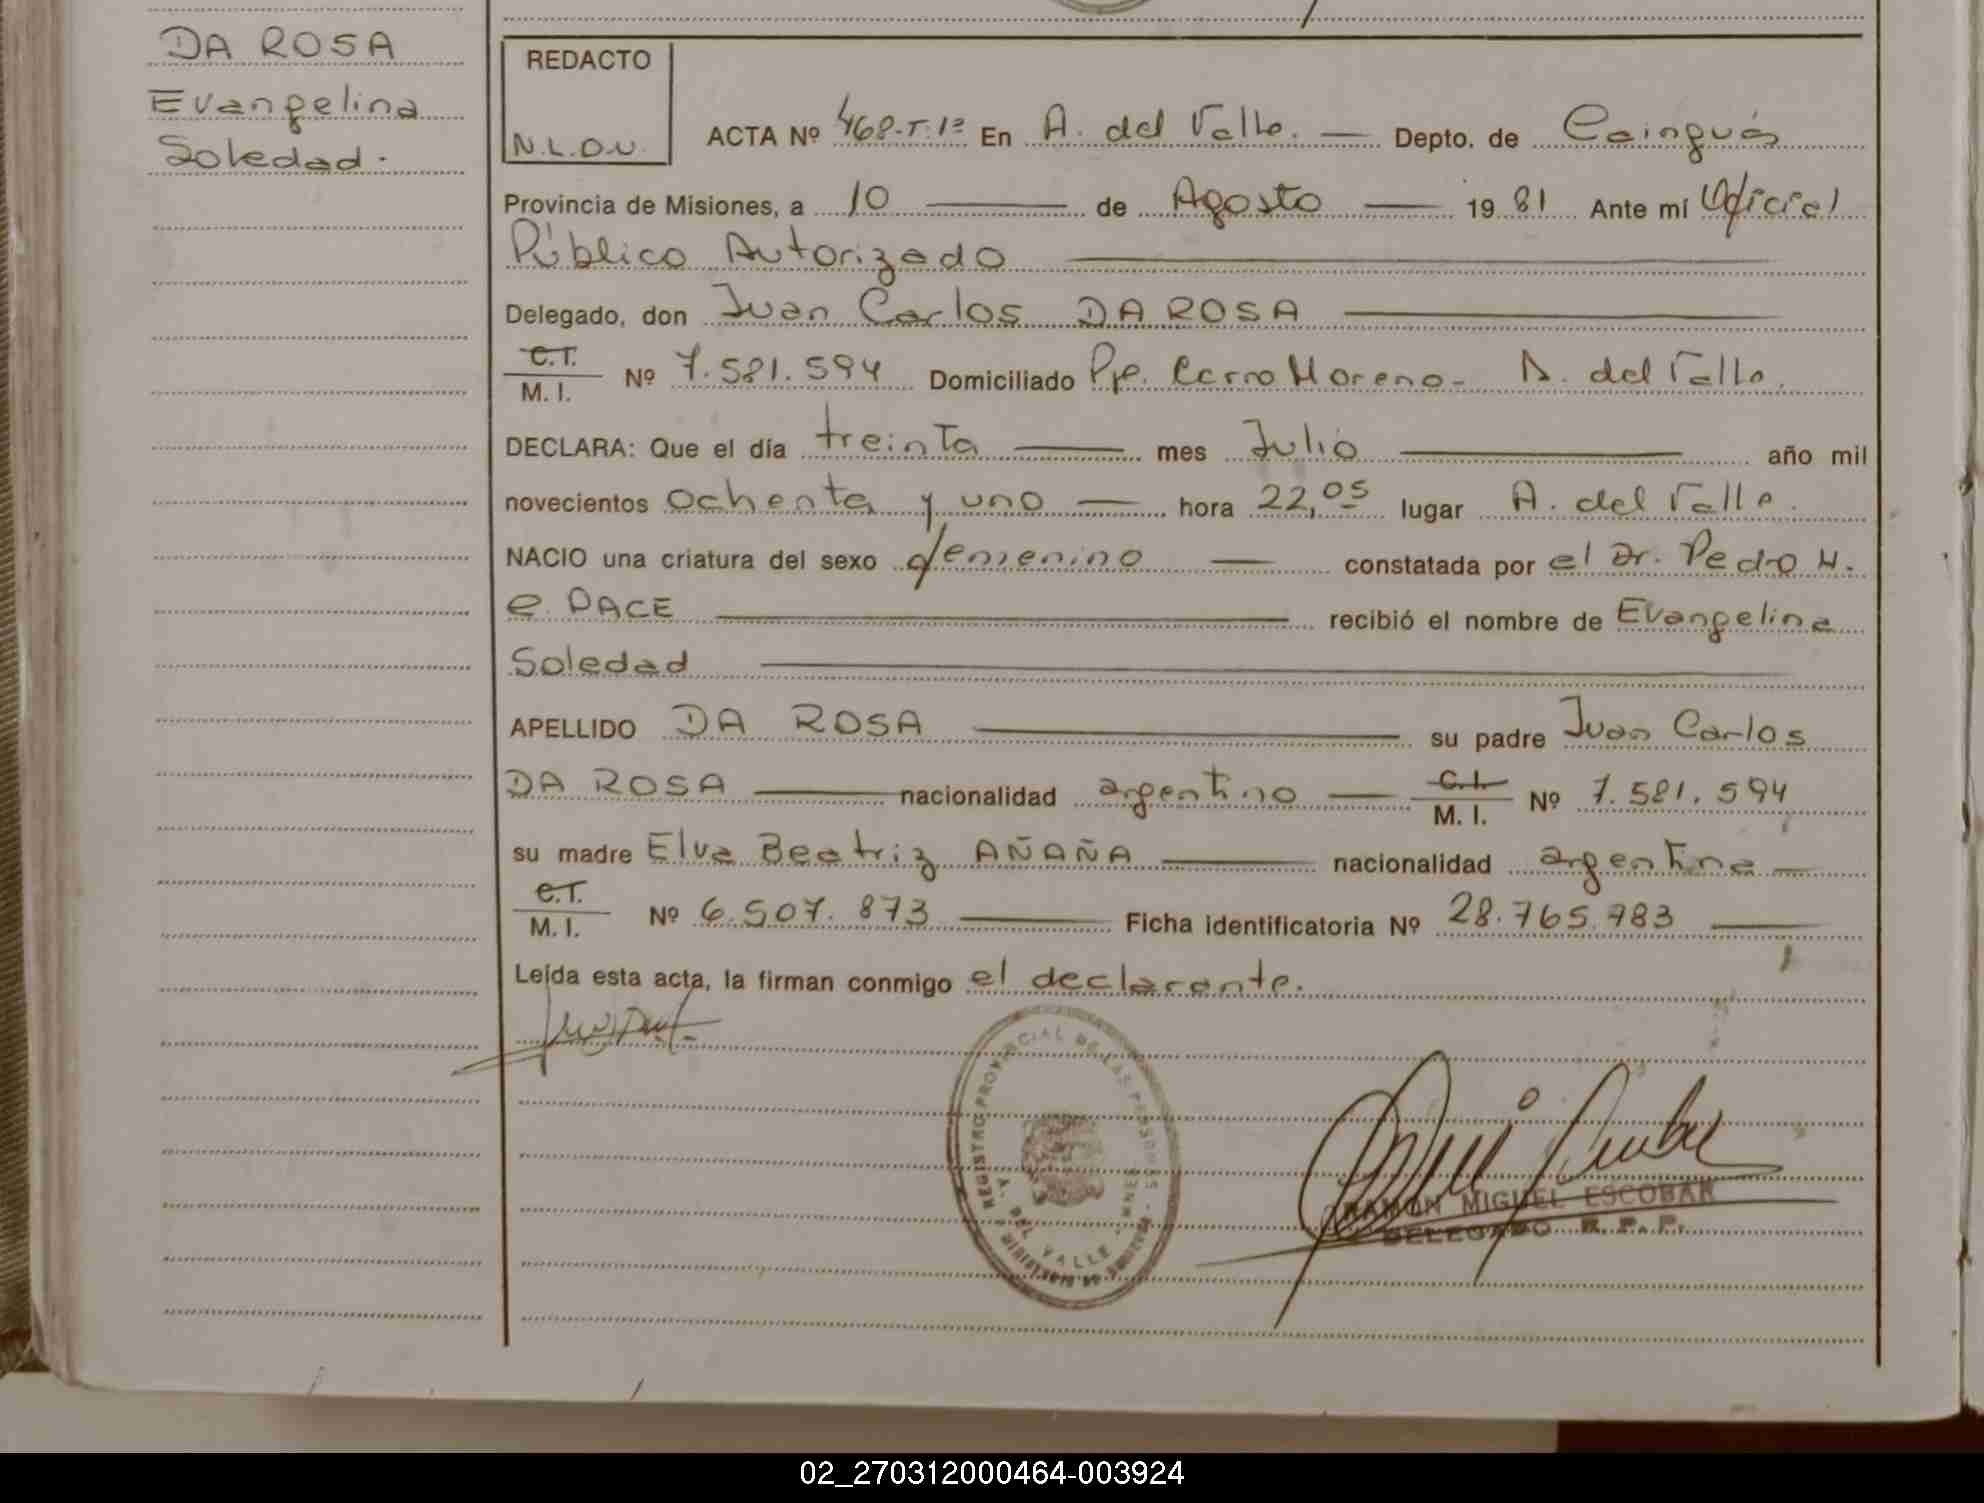 DA ROSA
Evangelina
Soledad.
REDACTO
N.L.D.U.
ACTA Nº 468-T.1º En A. del Valle. Depto. de Cainguás
Provincia de Misiones, a 10 de Agosto 1981 Ante mí Oficial
Público Autorizado
Delegado, don Juan Carlos DA ROSA
C.I. M. I. Nº 7.581.594 Domiciliado Pje. Cerro Moreno - A. del Valle.
DECLARA: Que el día treinta mes Julio año mil
novecientos ochenta y uno hora 22,05 lugar A. del Valle.
NACIO una criatura del sexo femenino constatada por el Dr. Pedro H.
e. PACE recibió el nombre de Evangelina
Soledad
APELLIDO DA ROSA su padre Juan Carlos
DA ROSA nacionalidad argentino C.I. M. I. Nº 7.581.594
su madre Elva Beatriz AÑAÑA nacionalidad argentina
C.I. M. I. Nº 6.507.873 Ficha identificatoria Nº 28.765.783
Leída esta acta, la firman conmigo el declarante.
REGISTRO PROVINCIAL DE LAS PERSONAS
A. DEL VALLE - MNES
RAMON MIGUEL ESCOBAR
DELEGADO R. P. P.
02_270312000464-003924